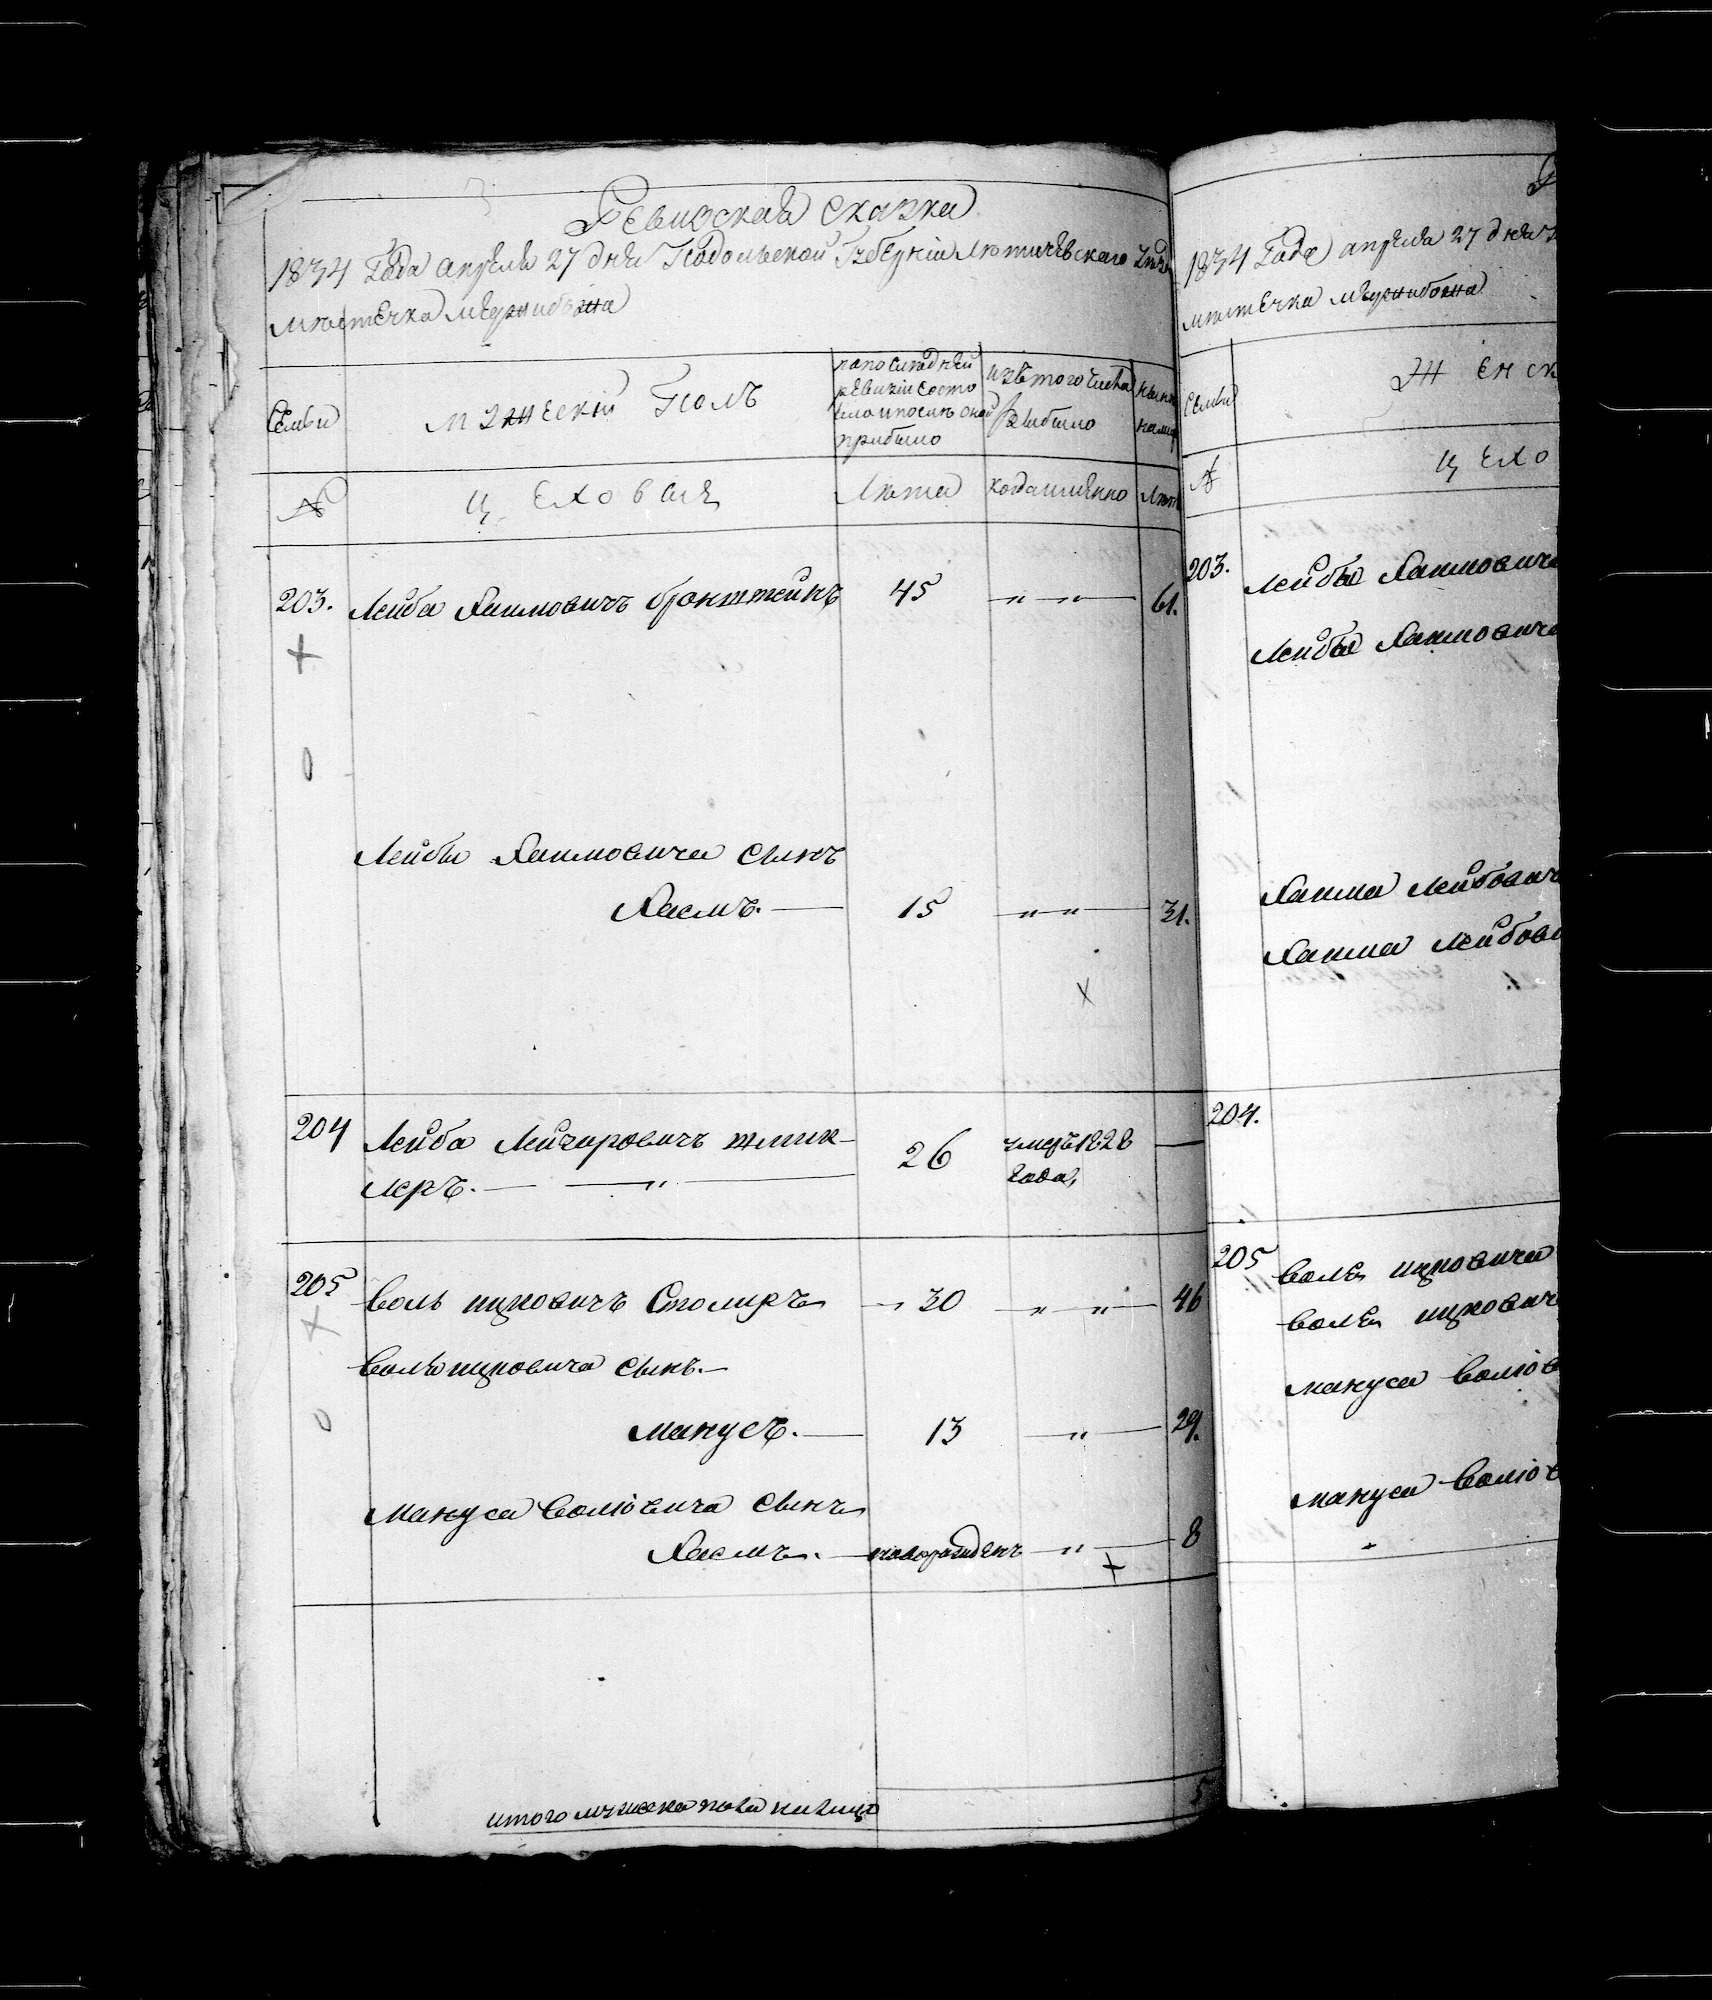 Ревизская сказка
1834 Года апреля 27 дня Подольской Губернии Летичевского
местечка Меджибожа
Семьи
мужеский Полъ
по последней ревизіи состояло и после оной прибыло
изъ того числа выбыло
ныне
№
Лета
когда именно
Лета
203. Лейба Хаимовичъ бронштейнъ 45 „ „ 61.
Лейбы Хаимовича сынъ
Хаемъ. 15 „ „ 31.
204 Лейба Лейзеровичъ
леръ. „ 26 умеръ 1828 Года,
205 Воль ицковичъ Столяръ 30 „ „ 46
Воля ицковича сынъ.
Манусъ. 13 „ 29.
Мануса Волювича сынъ
Хаемъ. новорожденъ „ 8
итого мужеска пола налицо 5
1834 Года апреля 27 дня
местечка Меджибожа
Семьи
Женск
№
203. Лейбы Хаимовича
Лейбы Хаимовича
Хаима Лейбович
Хаима Лейбов
204.
205 Воля ицковича
Воля ицкович
Мануса Волюв
Мануса Волюв